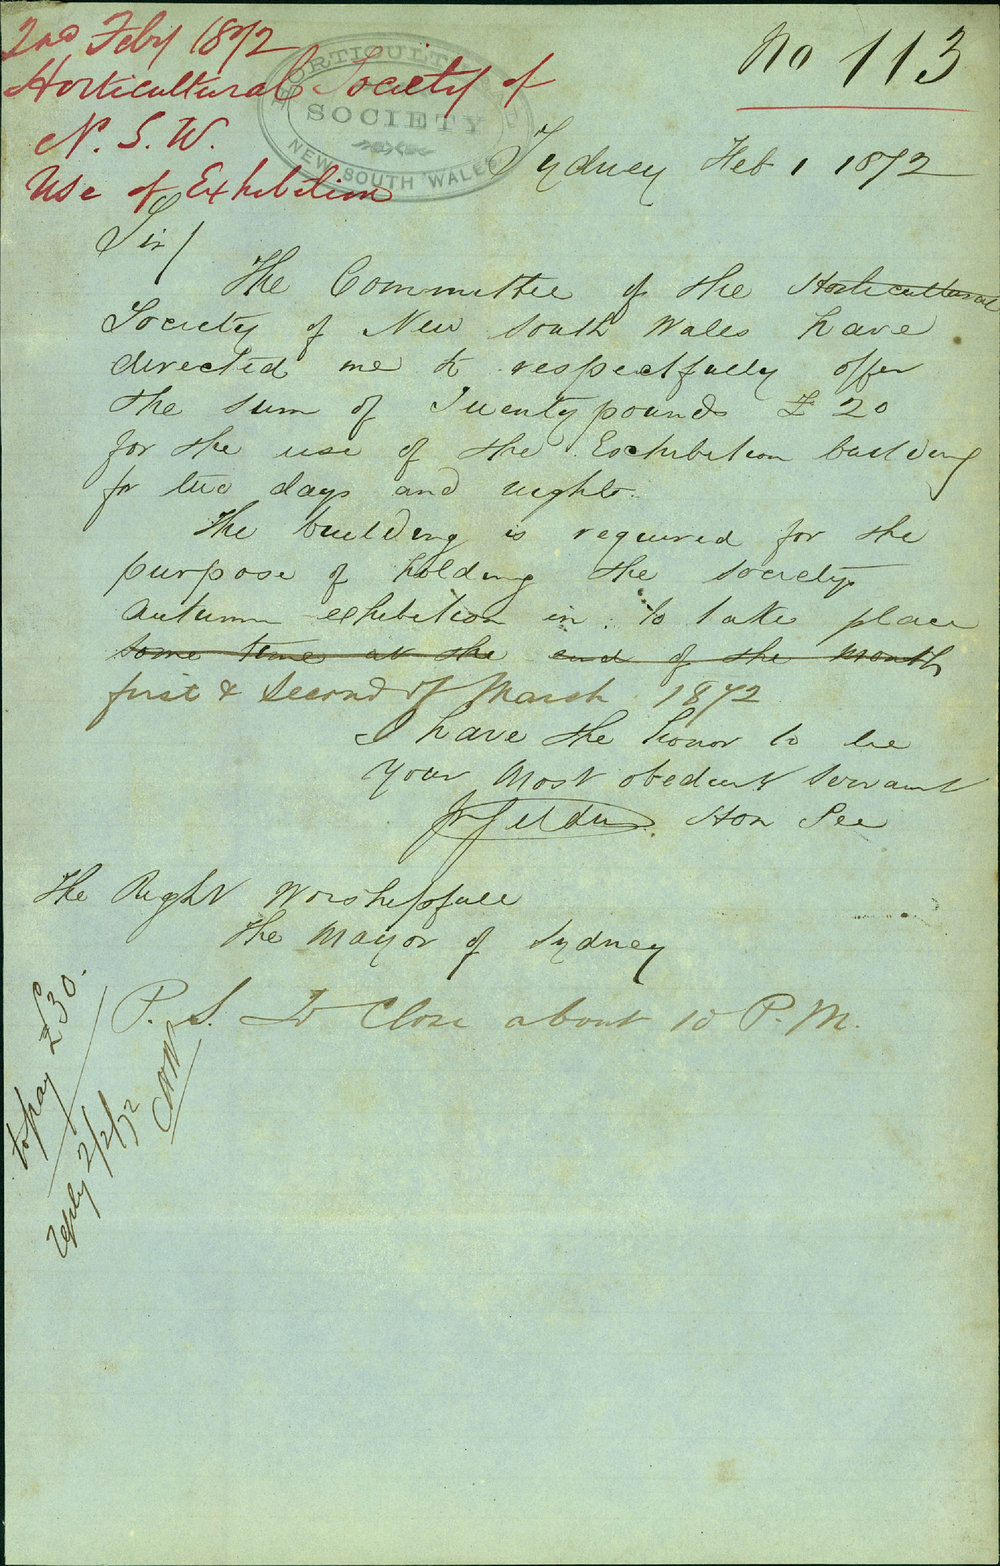 2nd Feby 1872
Horticultural Society of
N. S. W.
Use of Exhibition
HORTICULTURAL
SOCIETY
NEW SOUTH WALES
No 113
Sydney Feb 1 1872
Sir/
The Committee of the Horticultural
Society of New South Wales have
directed me to respectfully offer
the sum of Twenty pounds £ 20
for the use of the Exhibition building
for two days and nights.
The building is required for the
purpose of holding the societys
autumn exhibition in to take place
some time at the end of the month
first & second of March 1872
I have the honor to be
your most obedient servant
Hon Sec
The Right Worshipfull
The Mayor of Sydney
P. S. To Close about 10 P.M.
to pay £30.
reply 2/2/72